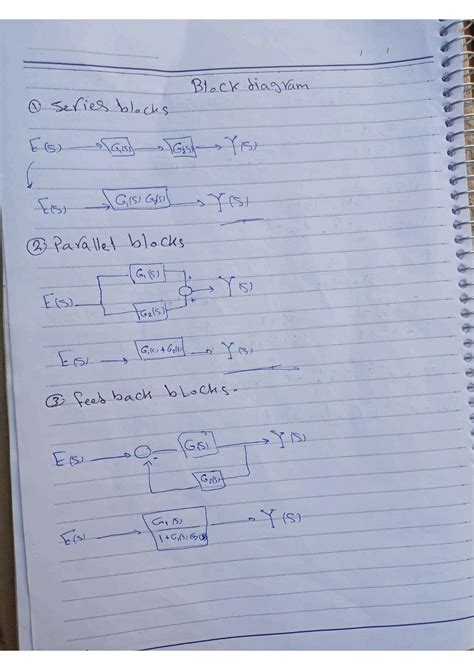 Block diagram
① Series blocks
E(S) G1(S) G2(S) Y(S)
E(S) G1(S) G2(S) Y(S)
② Parallel blocks
G1(S)
+
E(S) Y(S)
+
G2(S)
E(S) G1(S) + G2(S) Y(S)
③ feed back blocks.
E(S) G(S) Y(S)
-
G2(S)
E(S) G1(S) Y(S)
1+G1(S) G2(S)